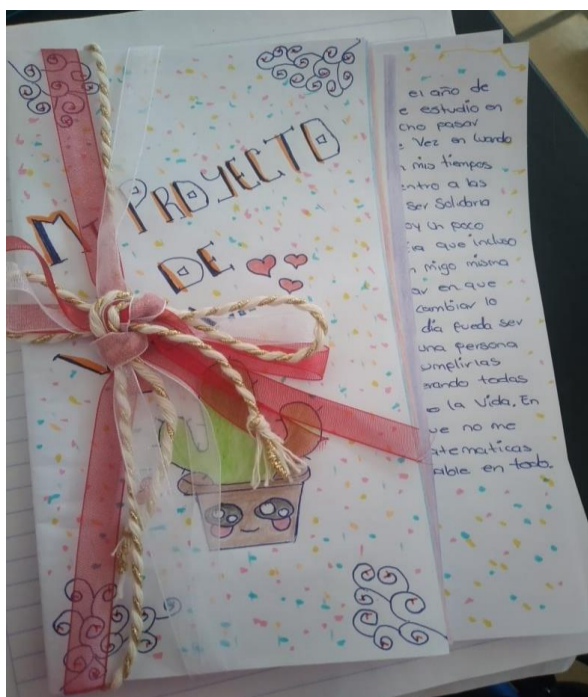 MI PROYECTO
DE
el año de
e estudio en
cho pasar
Vez en cuando
mis tiempos
entro a las
ser solidaria
oy un poco
ia que incluso
migo misma
ar en que
cambiar lo
día pueda ser
una persona
umplirlas
rando todas
la Vida. En
ue no me
atematicas
able en todo.